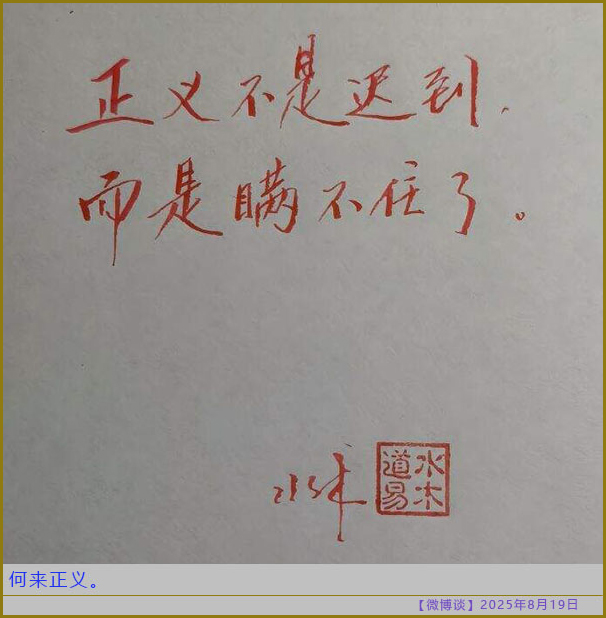 正义不是迟到，
而是瞒不住了。
水木
道易
何来正义。
【微博谈】2025年8月19日